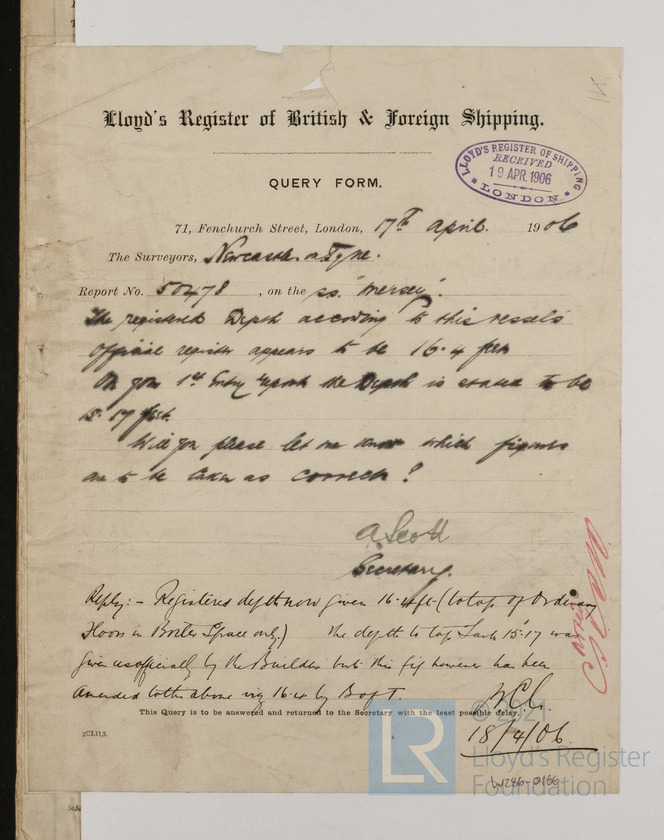 Lloyd's Register of British & Foreign Shipping.
LLOYD'S REGISTER OF SHIPPING
RECEIVED
19 APR. 1906
LONDON
QUERY FORM.
71, Fenchurch Street, London, 17th April. 1906
The Surveyors, Newcastle o Tyne.
Report No. 50478, on the ss. "Mersey".
The registered Depth according to this vessel's
Official register appears to be 16.4 feet
On your 1st Entry Report the Depth is stated to be
15.17 feet.
Will you please let me know which figures
are to be taken as correct?
A Scott
Secretary.
Reply:- Registered depth now given 16.4 ft (to top of Ordinary
Floors in Boiler Space only.) The depth to top Tank 15.17 was
given unofficially by the Builders but this fig however has been
amended to the above viz 16.4 by B of T.
This Query is to be answered and returned to the Secretary with the least possible delay.
18/4/06
2CL11,5.
© 2021
LR
Lloyd's Register
Foundation
W286-0166